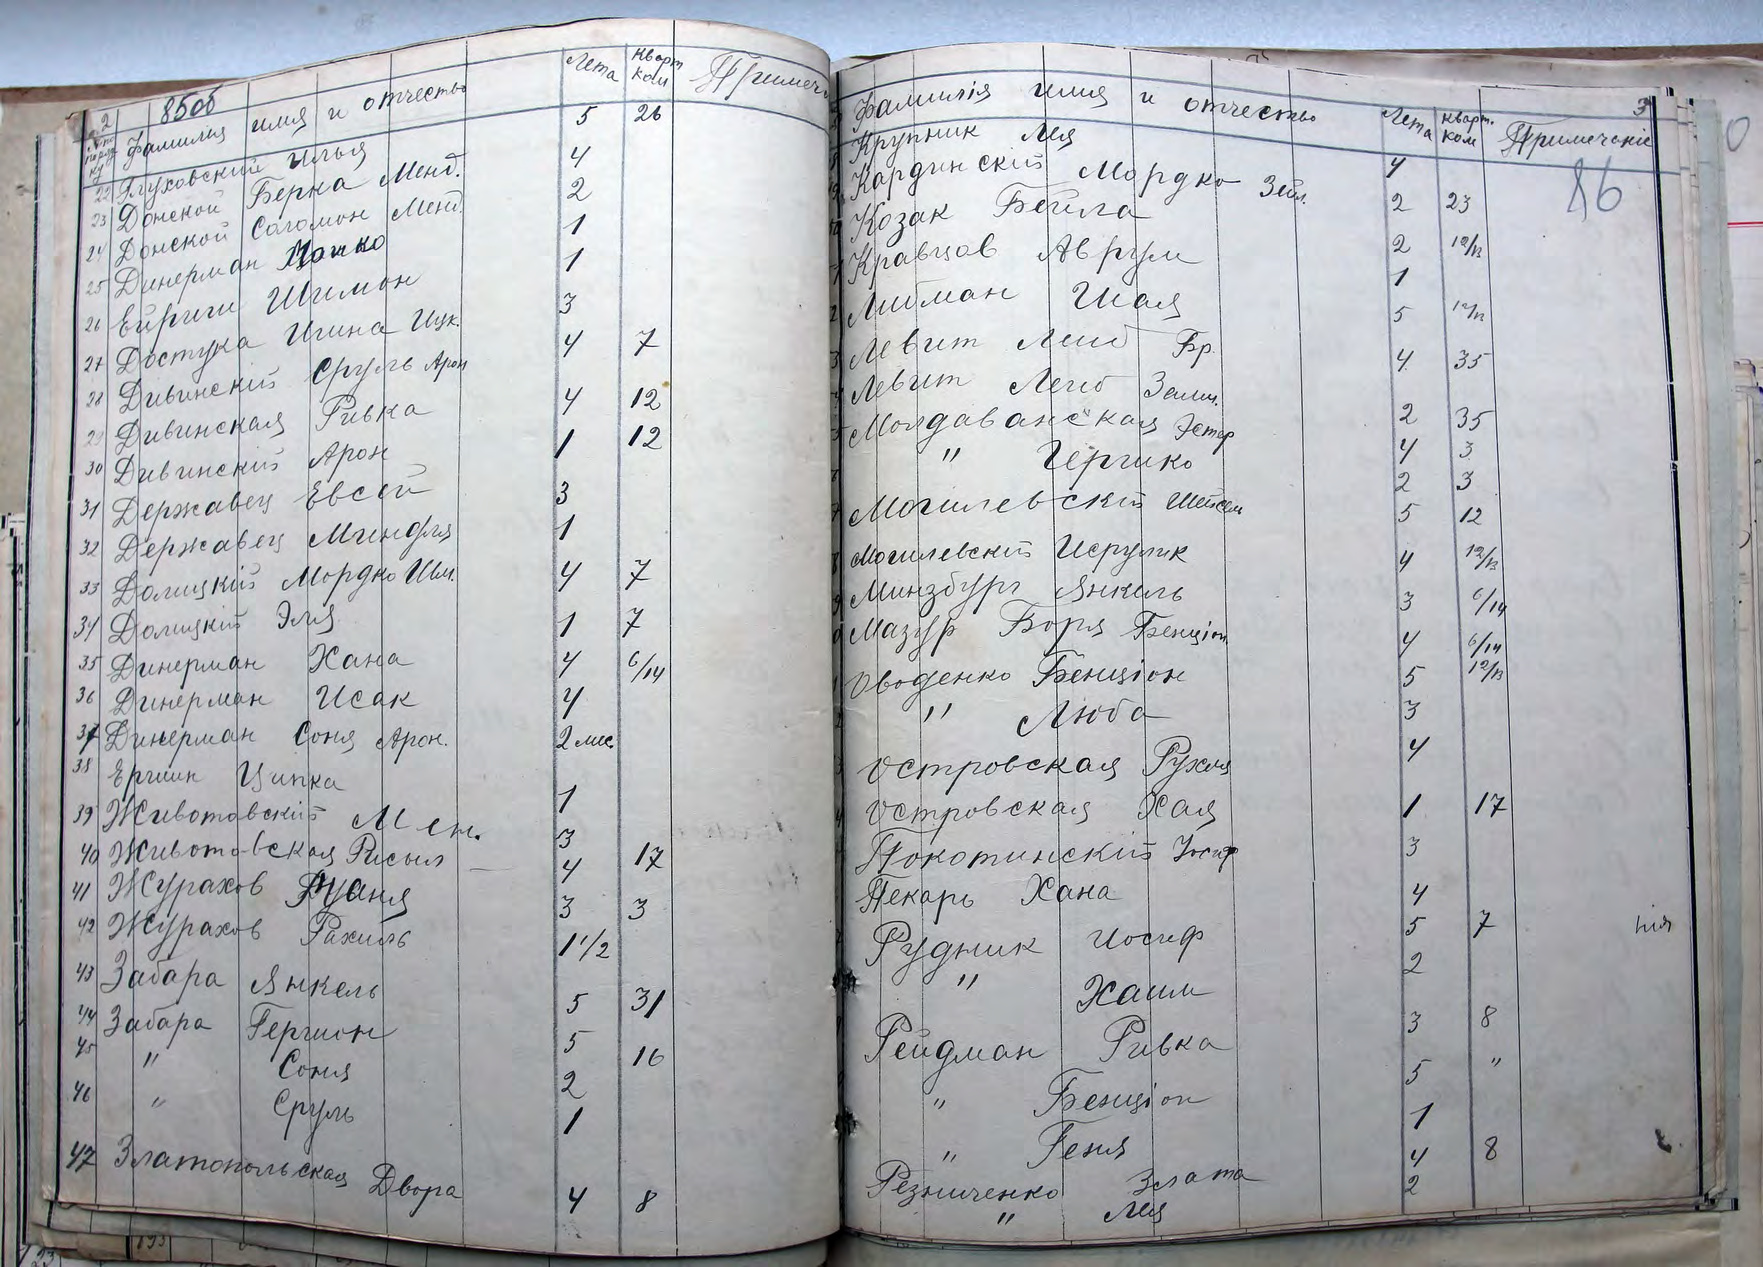 2
85об
Фамилия имя и отчество Лета Кварт ком Примеч
22 Глуховский Илья 5 26
23 Донской Берка Менд. 4
24 Донской Соломон Менд. 2
25 Динерман Мошко 1
26 Шимон 1
27 Достука Ицк. 3
28 Дивинскій Сруль Арон 4 7
29 Дивинская Ривка 4 12
30 Дивинскій Арон 1 12
31 Державец Евсей 3
32 Державец Миндля 1
33 Долицкій Мордко Шм. 4 7
34 Долицкій Эля 1 7
35 Динерман Хана 4 6/14
36 Динерман Исак 4
37 Динерман Соня Арон. 2 мес.
38 Ципка 1
39 Животовскій Мен. 3
40 Животовская Рисыл 4 17
41 Журахов 3 3
42 Журахов Рахиль 1 1/2
43 Забара Янкель 5 31
44 Забара Гершон 5 16
45 " Соня 2
46 " Сруль 1
47 Златопольская Двора 4 8
3
Фамилія имя и отчество Лета Кварт. ком Примечаніе
86
Крупник Лея 4
Кардинскій Мордко Зейл. 2 23
Козак Бейла 2 12/13
Кравцов Аврум 1
Либман Шая 5 12/13
Левит Лейб Бр. 4 35
Левит Лейб Залм. 2 35
Молдаванская Эстер 4 3
" Гершко 2 3
Могилевскій Шейсел 5 12
Могилевскій Исрулик 4 12/13
Минзбург Янкель 3 6/14
Мазур Боря Бенціон 4 6/14
Оводенко Бенціон 5 12/13
" Люба 3
Островская Рухля 4
Островская Хая 1 17
Покотинскій Іосиф 3
Пекарь Хана 4
Рудник Иосиф 5 7
" Хаим 2
Рейдман Ривка 3 8
" Бенціон 5 "
" Геня 1
Резниченко Злата 4 8
" Лея 2
нія